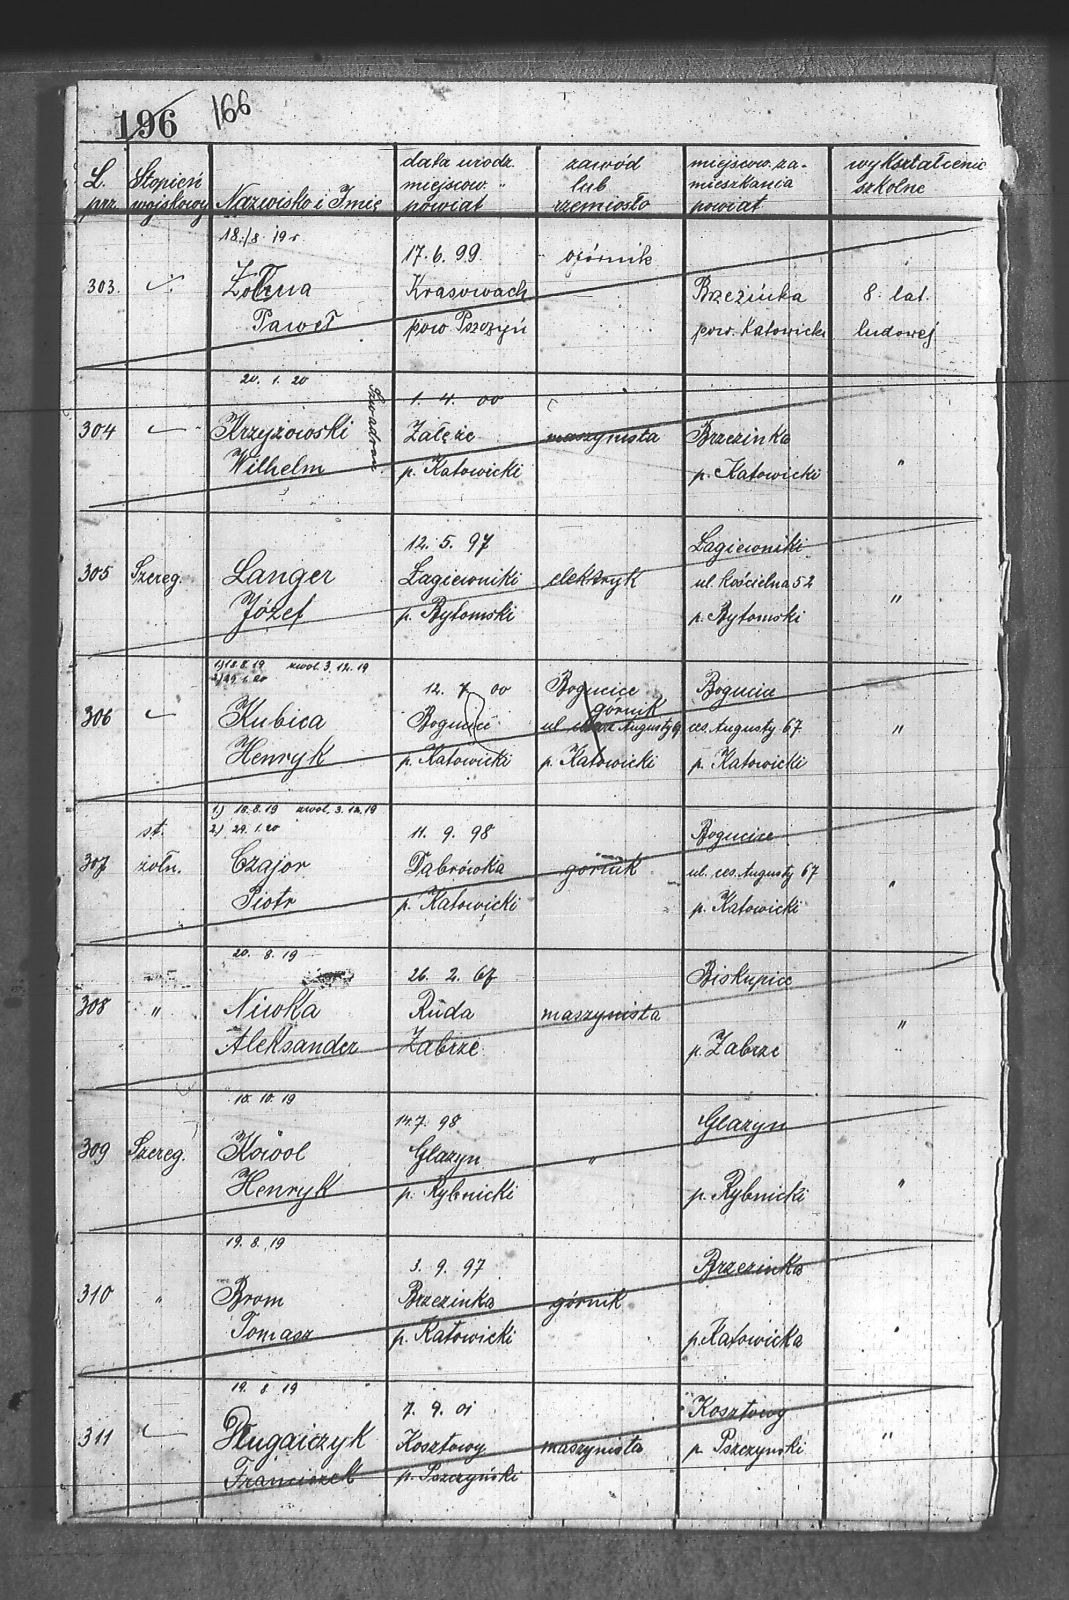 196 166
L. prz.
Stopień wojskowy
Nazwisko i Imię
data urodz. miejscow. " powiat
zawód lub rzemiosło
miejscow. za-mieszkania powiat
wykształcenie szkolne
18./8 19 r
17. 6. 99
303.
Paweł
Krasowach
pow Pszczyń
Brzezinka
pow. Katowicki
8. lat.
ludowej
20. 1. 20
Szwadron
1. 4. 00
304
Krzyżowski
Załęże
maszynista
Brzezinka
Wilhelm
p. Katowicki
p. Katowicki
"
12. 5. 97
Łagiewniki
305
Szereg.
Langer
Łagiewniki
elektryk
ul. Kościelna 52
Józef
p. Bytomski
p. Bytomski
"
1) 18.8.19 zwol. 3.12.19
2) 29.1.20
12. 7 00
Bogucice
górnik
Bogucice
306
Kubica
Bogucice
ul. Augusty 9
ces. Augusty 67
"
Henryk
p. Katowicki
p. Katowicki
p. Katowicki
1) 18.8.19 zwol. 3.12.19
2) 29.1.20
st.
11. 9. 98
Bogucice
307
żołn.
Czajor
Dąbrówka
górnik
ul. ces. Augusty 67
"
Piotr
p. Katowicki
p. Katowicki
20. 8. 19
26. 2. 67
Biskupice
308
"
Niwka
Ruda
maszynista
Aleksander
Zabrze
p. Zabrze
"
10. 10. 19
14.7. 98
Glazyn
309
Szereg.
Kowol
Glazyn
"
Henryk
p. Rybnicki
p. Rybnicki
"
19. 8. 19
3. 9. 97
Brzezinka
310
"
Brom
Brzezinka
górnik
Tomasz
p. Katowicki
p. Katowicka
"
19. 8 19
7. 9. 01
Kosztowy
311
Długaiczyk
Kosztowy
maszynista
p. Pszczyński
"
Franciszek
p. Pszczyński